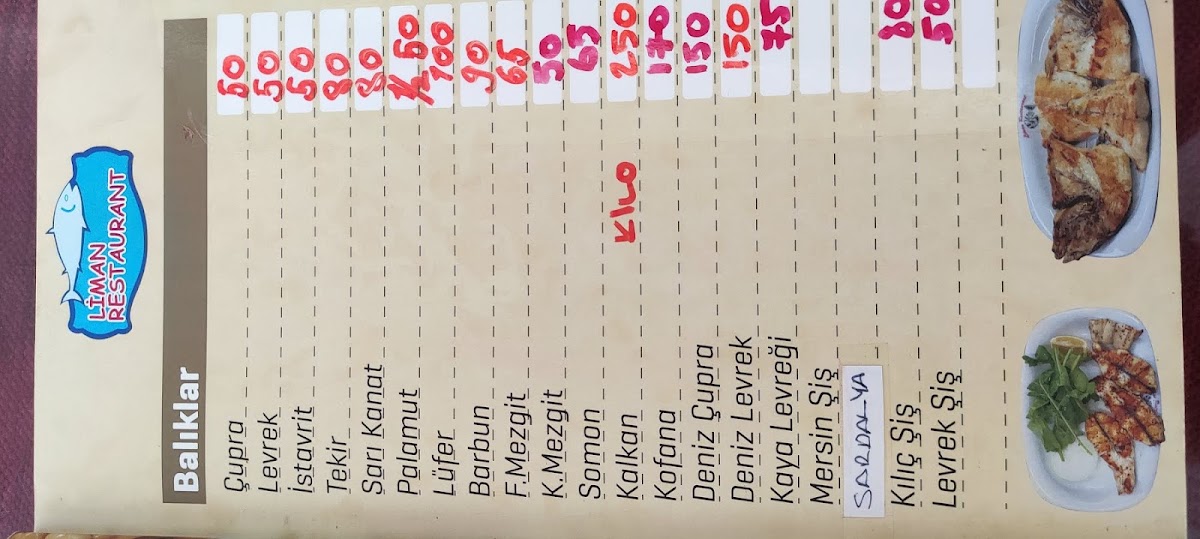 LİMAN
RESTAURANT
Balıklar
Çupra 50
Levrek 50
İstavrit 50
Tekir 80
Sarı Kanat 80
Palamut 1/2 50
Lüfer 100
Barbun 90
F.Mezgit 65
K.Mezgit 50
Somon 65
Kalkan Kilo 250
Kofana 170
Deniz Çupra 150
Deniz Levrek 150
Kaya Levreği 75
Mersin Şiş
SARDALYA
Kılıç Şiş 80
Levrek Şiş 50